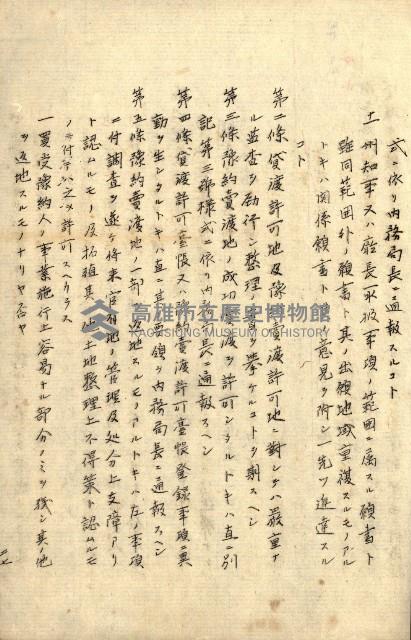 式ニ依リ内務局長ニ通報スルコト
十一 州知事又ハ廳長ハ承被事項ノ範圍ニ屬スル願書ト
雖同範圍外ノ願書ト其ノ出願地域重複スルモノアル
トキハ関係願書ト共ニ意見ヲ附シ一先ツ進達スル
コト
第二條 貸渡許可地及豫約賣渡許可地ニ對シテハ嚴重ナ
ル監査ヲ励行シ整理ノ實ヲ擧クルコトヲ期スヘシ
第三條 豫約賣渡地ノ成功賣渡ヲ許可シタルトキハ直ニ別
記第三號様式ニ依リ内務局長ニ通報スヘシ
第四條 貸渡許可臺帳又ハ豫約賣渡許可臺帳登録事項ニ異
動ヲ生シタルトキハ直ニ其ノ要領ヲ内務局長ニ通報スヘシ
第五條 豫約賣渡地ノ一部ヲ返地スルモノアルトキハ左ノ事項
ニ付調査ヲ遂ケ将来官有地ノ管理及処分上支障アリ
ト認ムルモノ及拓殖其ノ他土地整理上不得策ト認ムルモ
ノニ付テハ之ヲ許可スヘカラス
一 買受豫約人ノ事業施行上容易ナル部分ノミヲ残シ其ノ他
ヲ返地スルモノナリヤ否ヤ
高雄市立歷史博物館
KAOHSIUNG MUSEUM OF HISTORY